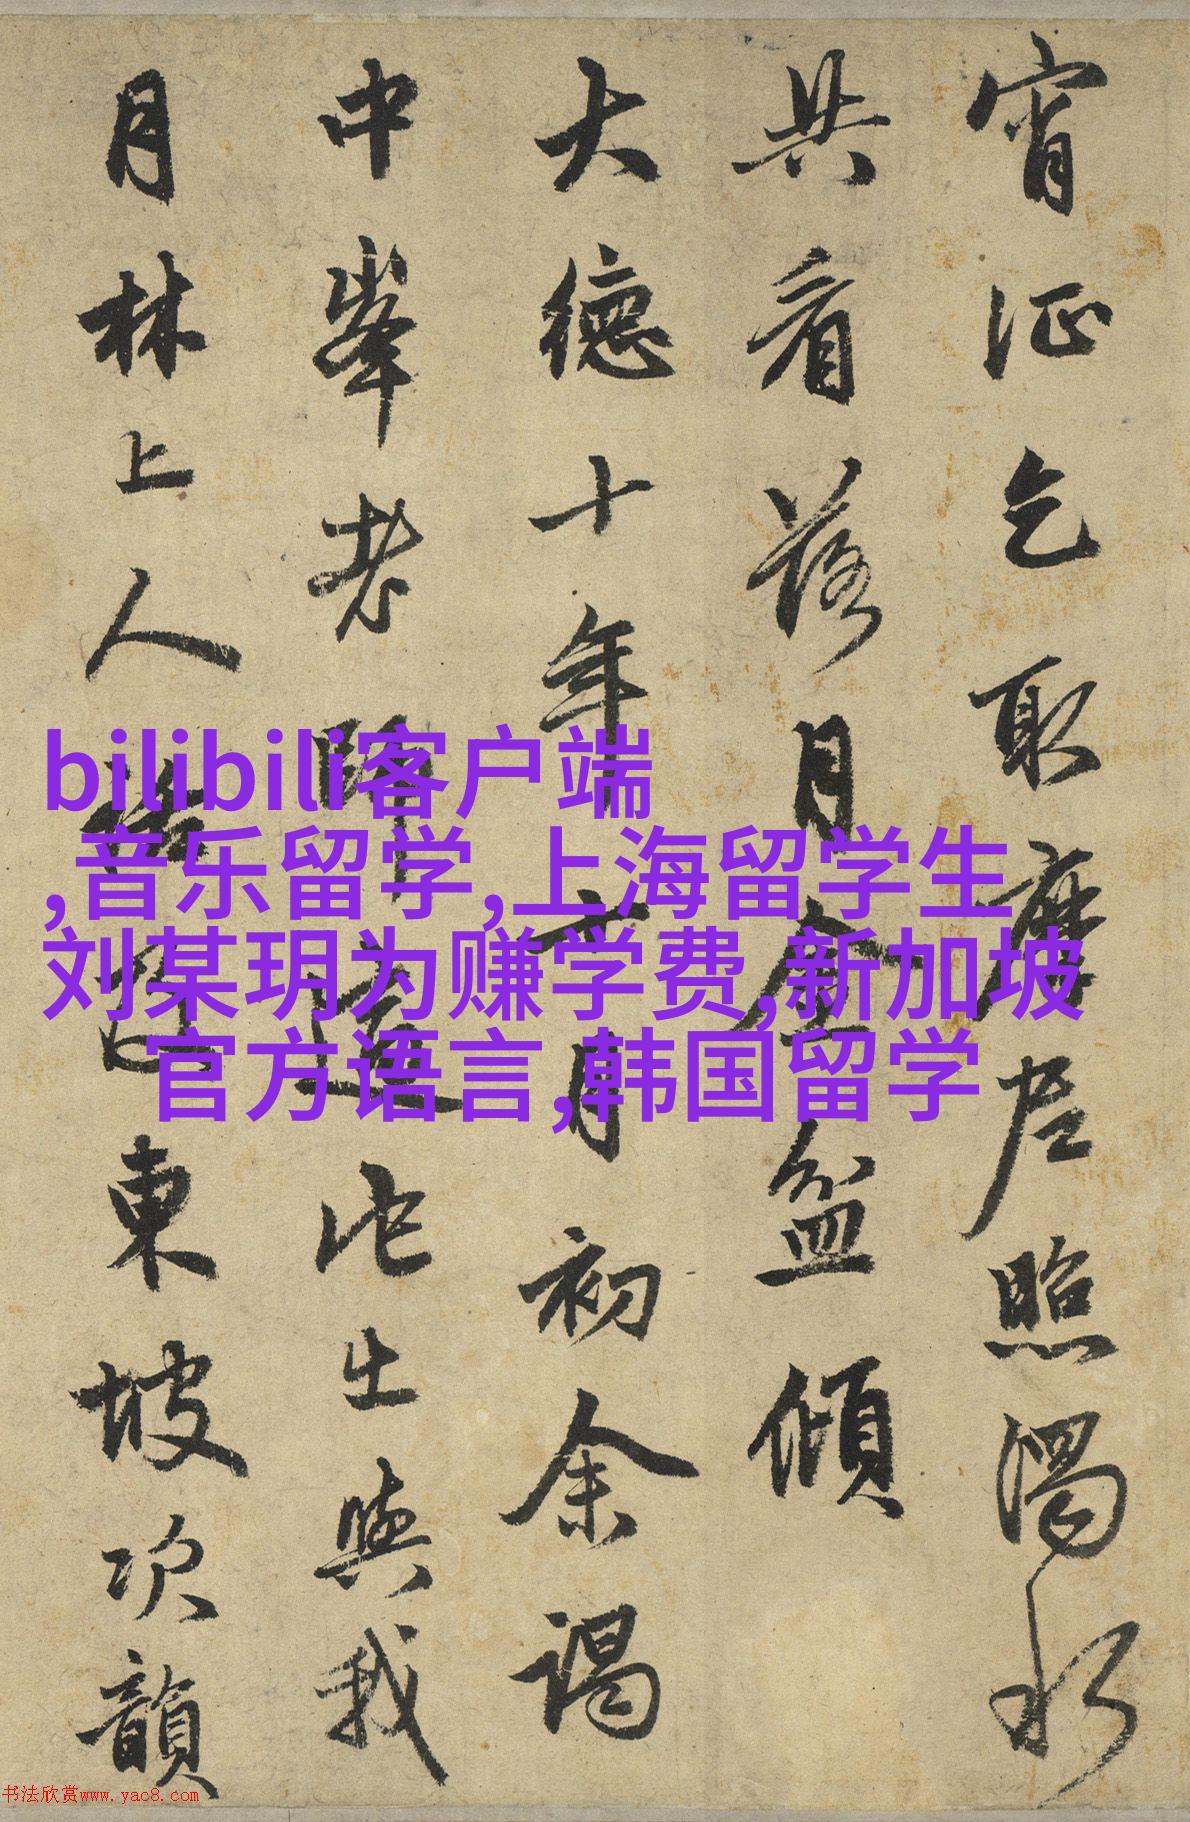 宵征乞取摩尼照濁水
共看落月金盆傾
大德十年六月初余謁
中峯老師出與我
月林上人東坡次韻
bilibili客户端
,音乐留学,上海留学生
刘某玥为赚学费,新加坡
官方语言,韩国留学
书法欣赏www.yac8.com